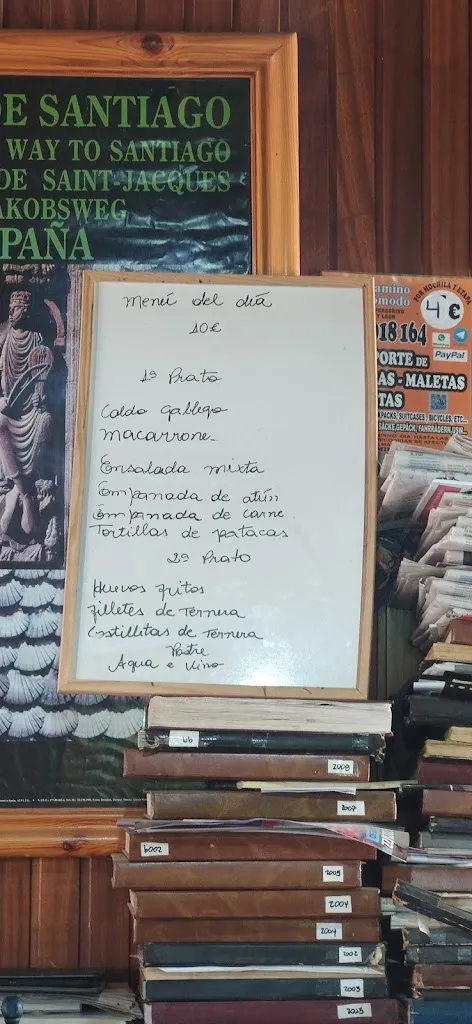 DE SANTIAGO
WAY TO SANTIAGO
DE SAINT-JACQUES
AKOBSWEG
PAÑA
Menú del día
10€
1º Prato
Caldo gallego
Macarrone
Ensalada mixta
Empanada de atún
Empanada de carne
Tortillas de patacas
2º Prato
Huevos fritos
filletes de Ternera
Costillitas de Ternera
Postre
Agua e Vino
amino
omodo
POR MOCHILA Y ETAPA
4 €
018 164
PayPal
PORTE DE
AS - MALETAS
TAS
KPACKS, SUITCASES, BICYCLES, ETC...
SÄCKE, GEPÄCK, FAHRRÄDERN, USW...
66
2008
2007
6002
2005
2004
2004
2002
2003
2025